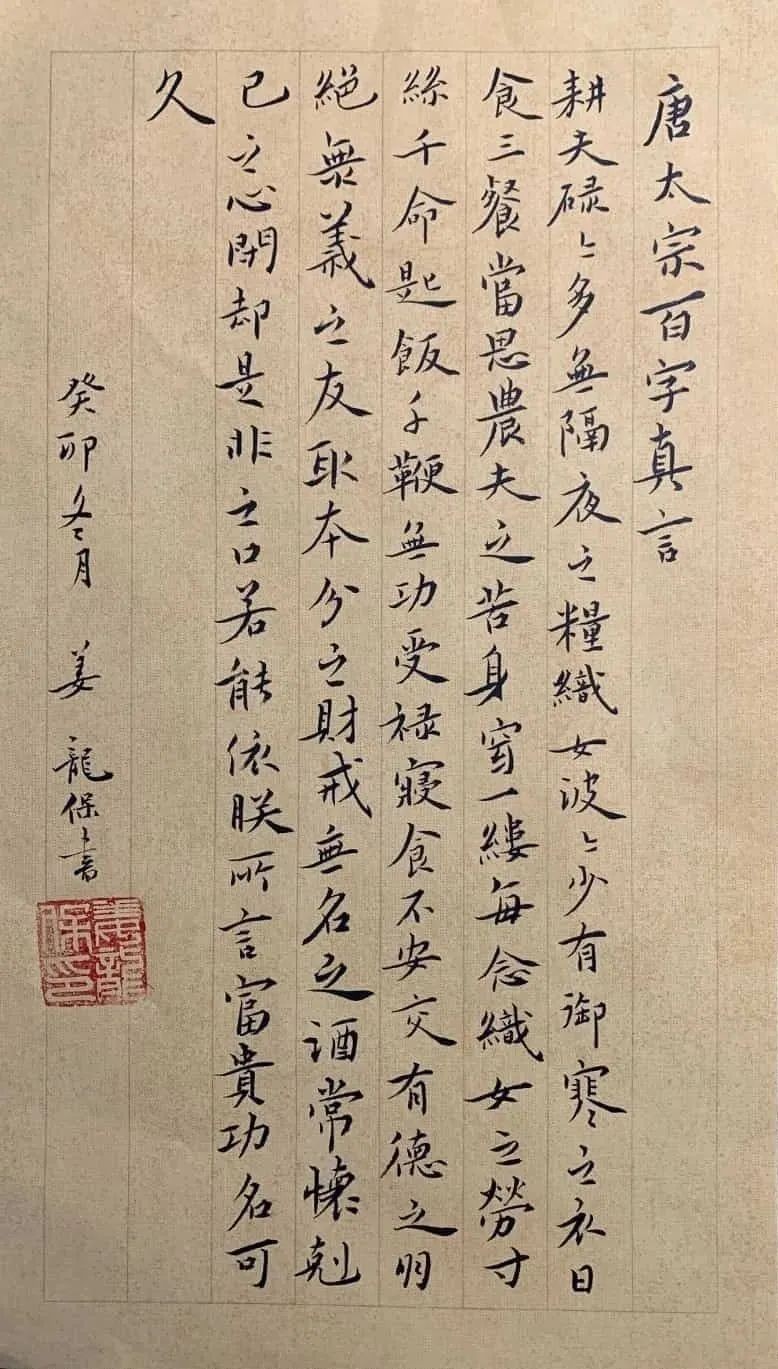 唐太宗百字真言
耕夫碌〻多無隔夜之糧織女波〻少有御寒之衣日
食三餐當思農夫之苦身穿一縷每念織女之勞寸
絲千命匙飯千鞭無功受祿寢食不安交有德之朋
絕無義之友取本分之財戒無名之酒常懷剋
己之心閉却是非之口若能依朕所言富貴功名可
久
癸卯冬月 姜龍保書
姜龍保印